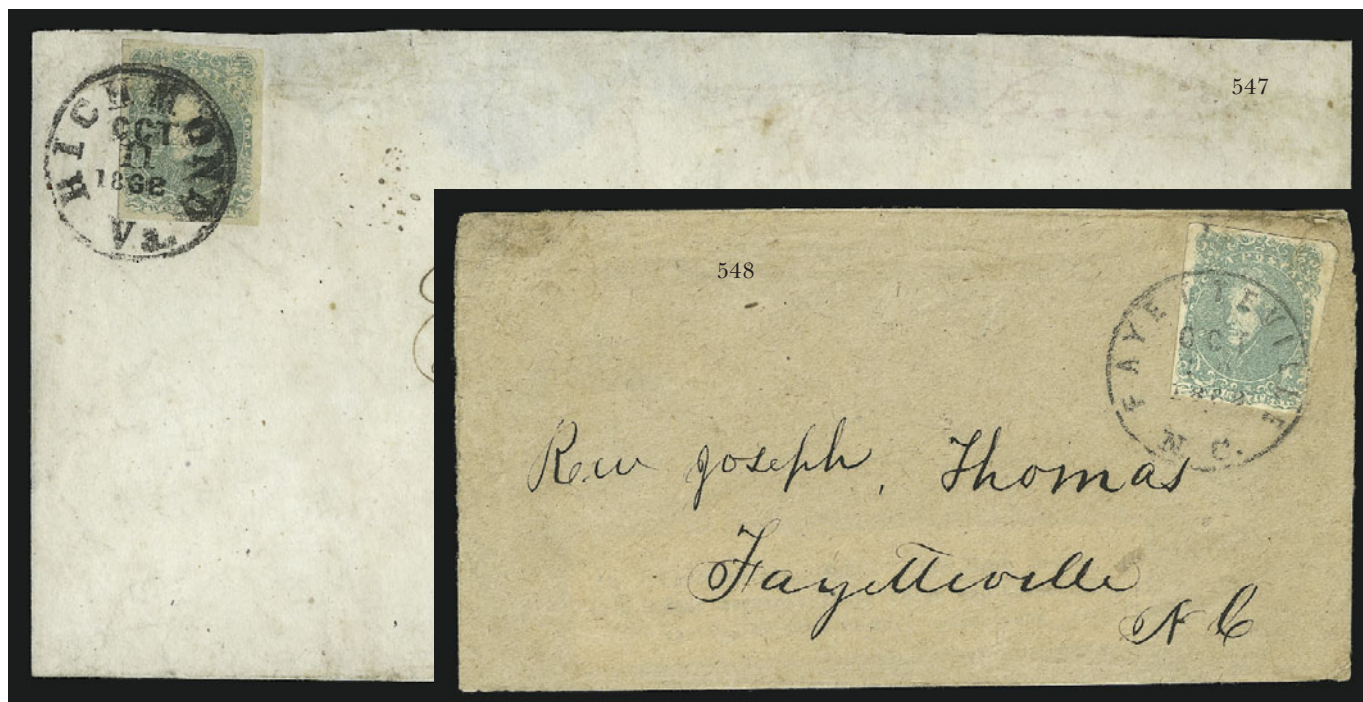 547
RICHMOND
OCT
11
1862
Va.
548
FAYETTEVILLE
OCT
N. C.
Rev Joseph, Thomas
Fayetteville
N C